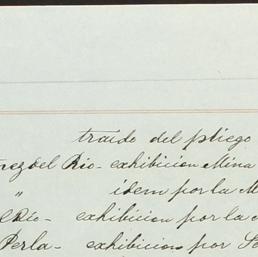 traido del pliego
del Rio - exhibicion Mina
" idem por la M
Rio - exhibicion por la
Perla - exhibicion por